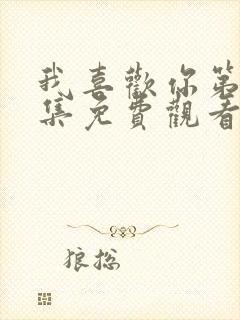 我喜歡你第
集免費觀看
狼总